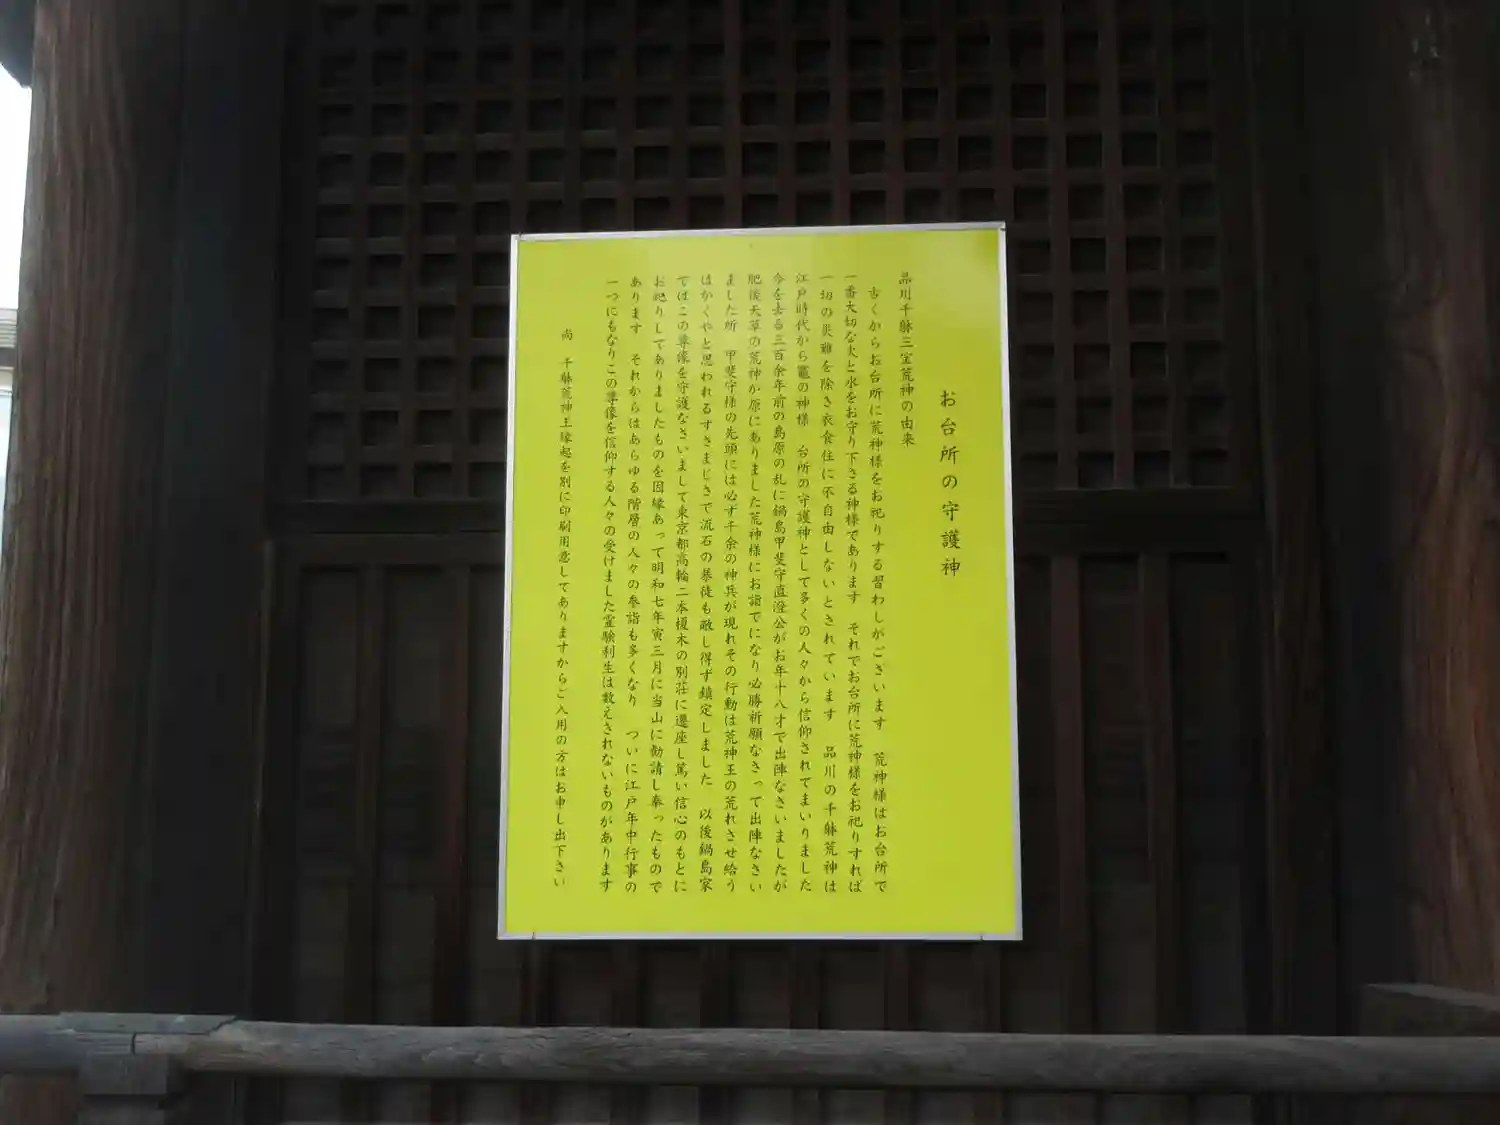 お台所の守護神
品川千躰三宝荒神の由来
古くからお台所に荒神様をお祀りする習わしがございます　荒神様はお台所で
一番大切な火と水をお守り下さる神様であります　それでお台所に荒神様をお祀りすれば
一切の災難を除き衣食住に不自由しないとされています　品川の千躰荒神は
江戸時代から竈の神様　台所の守護神として多くの人々から信仰されてまいりました
今を去る三百余年前の島原の乱に鍋島甲斐守直澄公がお年十八才で出陣なさいましたが
肥後天草の荒神か原にありました荒神様にお詣でになり必勝祈願なさって出陣なさい
ました所　甲斐守様の先頭には必ず千余の神兵が現れその行動は荒神王の荒れさせ給う
はかくやと思われるすさまじさで流石の暴徒も敵し得ず鎮定しました　以後鍋島家
ではこの尊像を守護なさいまして東京都高輪二本榎木の別荘に遷座し篤い信心のもとに
お祀りしてありましたものを因縁あって明和七年寅三月に当山に勧請し奉ったもので
あります　それからはあらゆる階層の人々の参詣も多くなり　ついに江戸年中行事の
一つにもなりこの尊像を信仰する人々の受けました霊験利生は数えきれないものがあります
尚　千躰荒神王縁起を別に印刷用意してありますからご入用の方はお申し出下さい